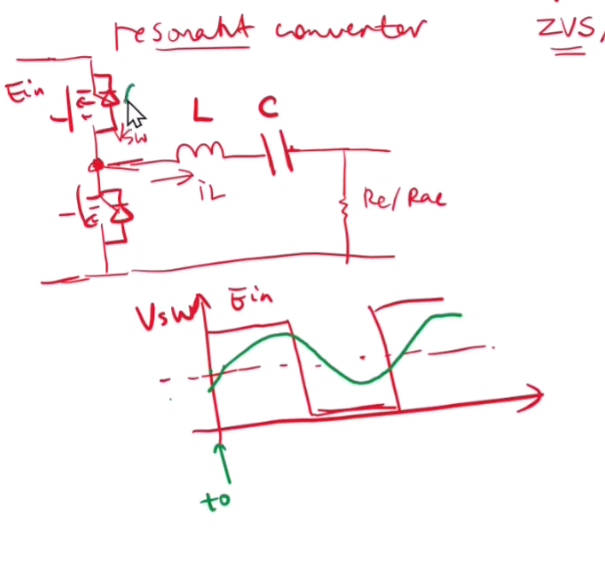 resonant converter ZVS,
Ein
Vsw
L C
iL
Re/Rac
Vsw Ein
to